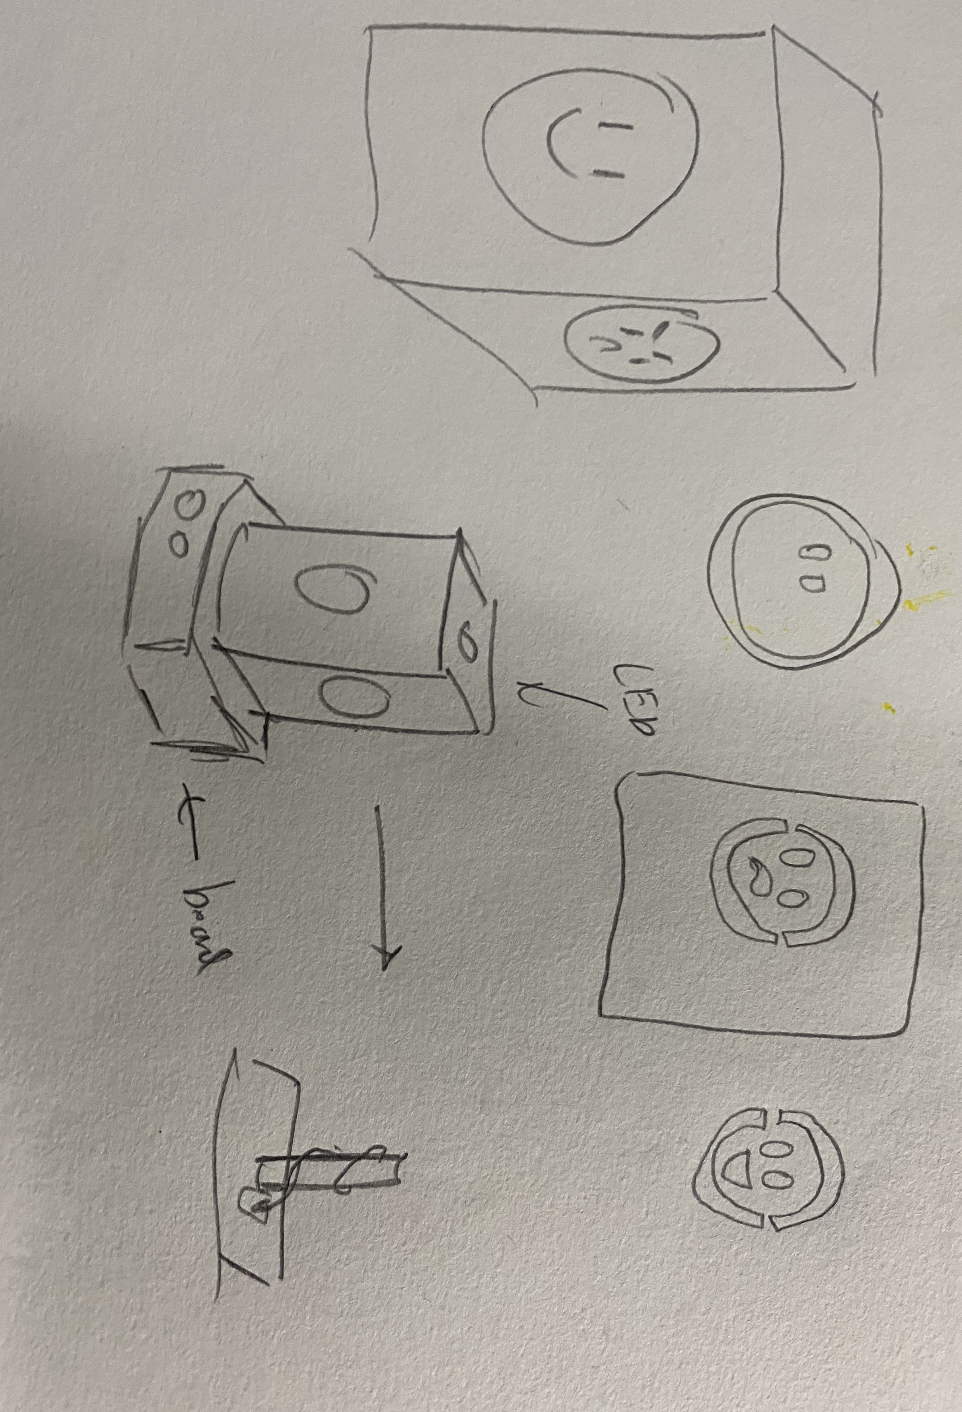 LED
board